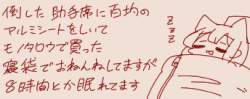 倒した助手席に百均の
アルミシートをしいて
モノタロウで買った
寝袋でおねんねしてますが
8時間とか眠れてます
zzz